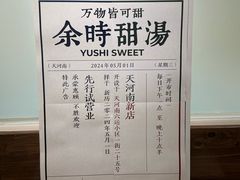 万物皆可甜
余時甜湯
YUSHI SWEET
（天河南） 2024年05月01日 （星期三）
开市时间
每日下午一点至晚上十点半
天河南新店
开设于天河南六运小区一街二十五号
择于新历二零二四年五月一日
先行试营业
承蒙惠顾 不胜欢迎
特此广告